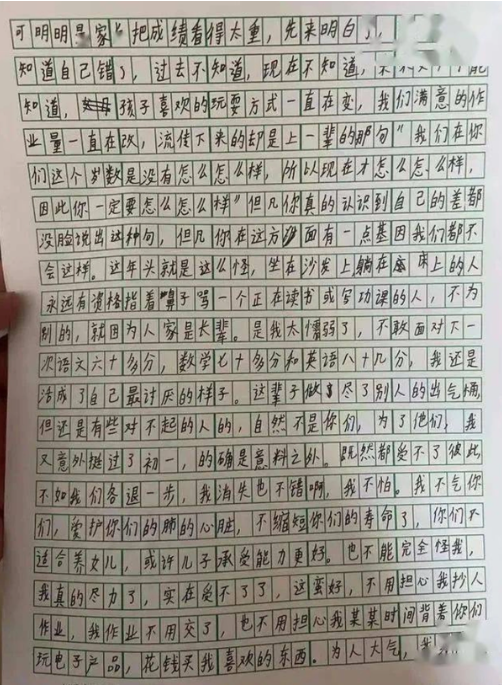 可明明是家长把成绩看得太重,先来明白了,
知道自己错了,过去不知道,现在不知道,
知道,孩子喜欢的玩耍方式一直在变,我们满意的作
业量一直在改,流传下来的却是上一辈的那句“我们在你
们这个岁数是没有怎么怎么样,所以现在才怎么怎么样,
因此你一定要怎么怎么样”但凡你真的认识到自己的差都
没脸说出这种句,但凡你在这方面有一点基因我们都不
会这样。这年头就是这么怪,坐在沙发上躺在床上的人
永远有资格指着鼻子骂一个正在读书或写功课的人,不为
别的,就因为人家是长辈。是我太懦弱了,不敢面对下一
次语文六十多分,数学七十多分和英语八十几分,我还是
活成了自己最讨厌的样子。这辈子做尽了别人的出气桶,
但还是有些对不起的人的,自然不是你们,为了他们,我
又意外挺过了初一,的确是意料之外。既然都受不了彼此
不如我们各退一步,我消失也不错啊,我不怕。我不气你
们,爱护你们的肺的心脏,不缩短你们的寿命了,你们不
适合养女儿,或许儿子承受能力更好。也不能完全怪我,
我真的尽力了,实在受不了了,这蛮好,不用担心我抄人
作业,我作业不用交了,也不用担心我某某时间背着你们
玩电子产品,花钱买我喜欢的东西。为人大气,我